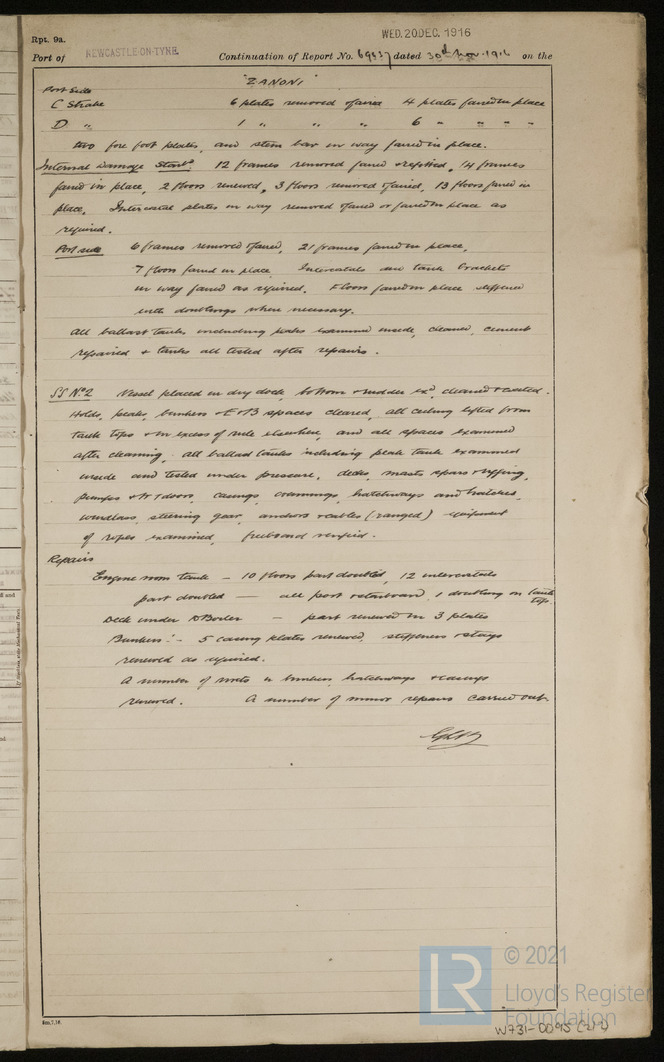 WED. 20 DEC. 1916
Rpt. 9a.
Port of NEWCASTLE-ON-TYNE. Continuation of Report No. 69537 dated 30th Nov. 1916 on the
"ZANONI"
Port Side
C Strake 6 plates removed faired 4 plates faired in place
D " 1 " " " 6 " " " "
two fore foot plates, and stem bar in way faired in place.
Internal Damage Starbd. 12 frames removed faired & refitted, 14 frames
faired in place, 2 floors renewed, 3 floors removed faired, 13 floors faired in
place. Intercostal plates in way removed faired or faired in place as
required.
Port side 6 frames removed faired, 21 frames faired in place,
7 floors faired in place. Intercostals and tank brackets
in way faired as required. Floors faired in place stiffened
with doublings where necessary.
All ballast tanks including peaks examined inside, cleaned, cement
repaired & tanks all tested after repairs.
SS No. 2 Vessel placed in dry dock, bottom & rudder exd, cleaned & coated.
Holds, peaks, bunkers & E & B spaces cleared, all ceiling lifted from
tank tops & in excess of rule elsewhere, and all spaces examined
after cleaning, all ballast tanks including peak tank examined
inside and tested under pressure, decks, masts spars & rigging,
pumps & W T doors, casings, coamings, hatchways and hatches,
windlass, steering gear, anchors & cables (ranged) equipment
of ropes examined, freeboard verified.
Repairs
Engine room tank - 10 floors part doubled, 12 intercostals
part doubled - all port & starboard, 1 doubling on tank
top.
Deck under D Boiler - part renewed in 3 plates
Bunkers:- 5 casing plates renewed, stiffeners & stays
renewed as required.
A number of rivets in bunkers, hatchways & casings
renewed. A number of minor repairs carried out.
© 2021
Lloyd's Register
Foundation
W731-0095 (2/2)